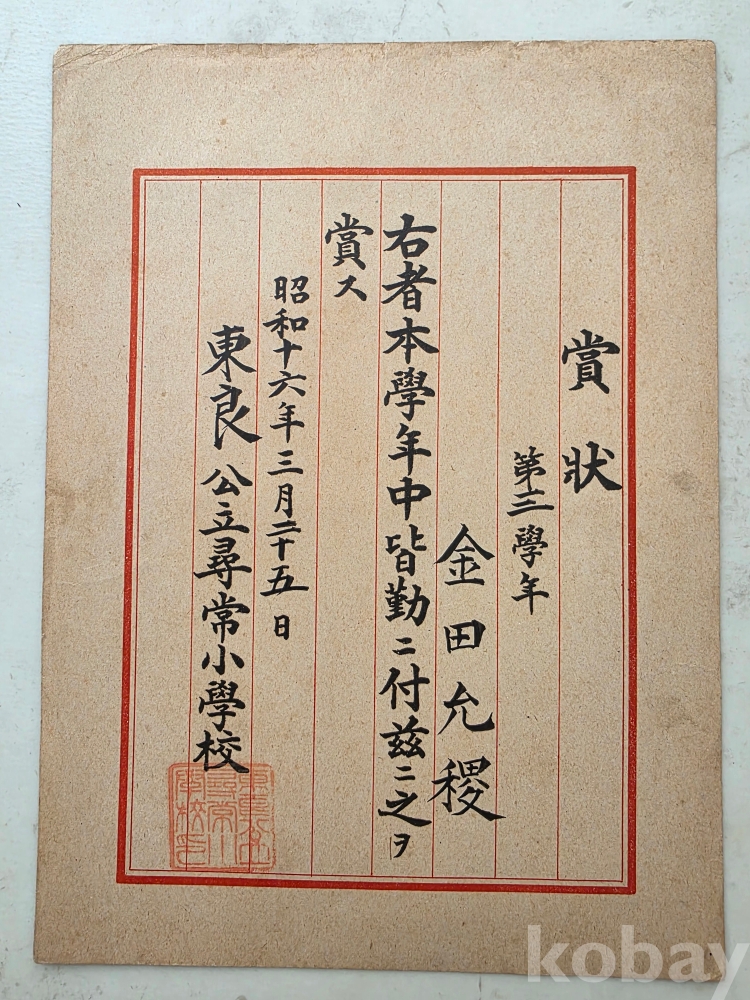 賞狀
第三學年
金田允稷
右者本學年中皆勤ニ付玆ニ之ヲ
賞ス
昭和十六年三月二十五日
東良公立尋常小學校
kobay